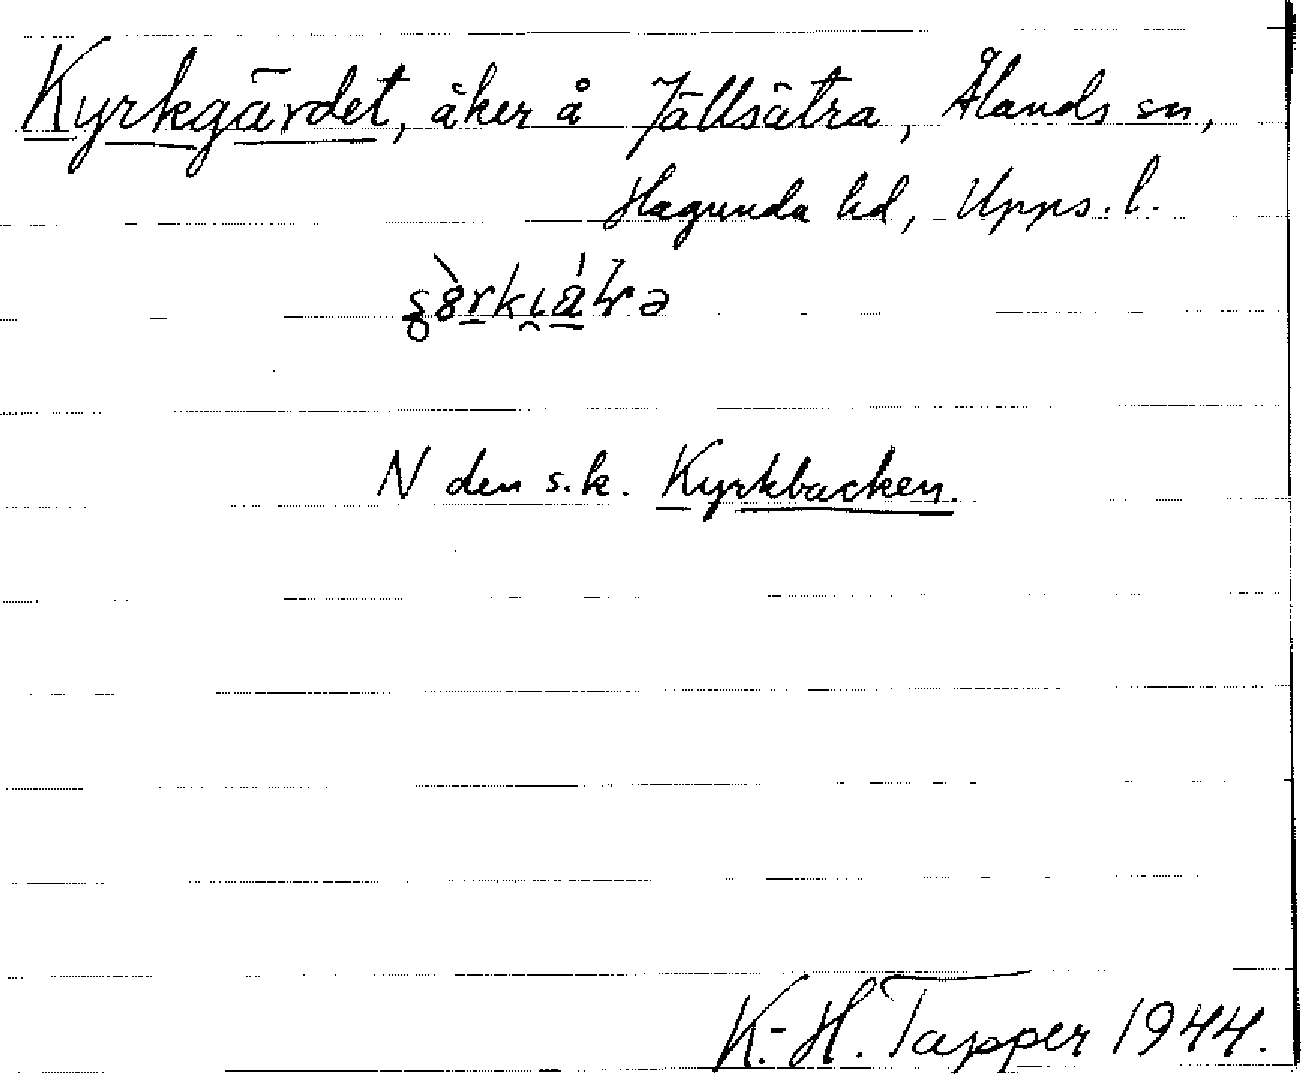 Kyrkgärdet, åker å Jällsätra, Ålands sn,
Hagunda hd, Upps. l.
N den s.k. Kyrkbacken.
K.-H. Tapper 1944.